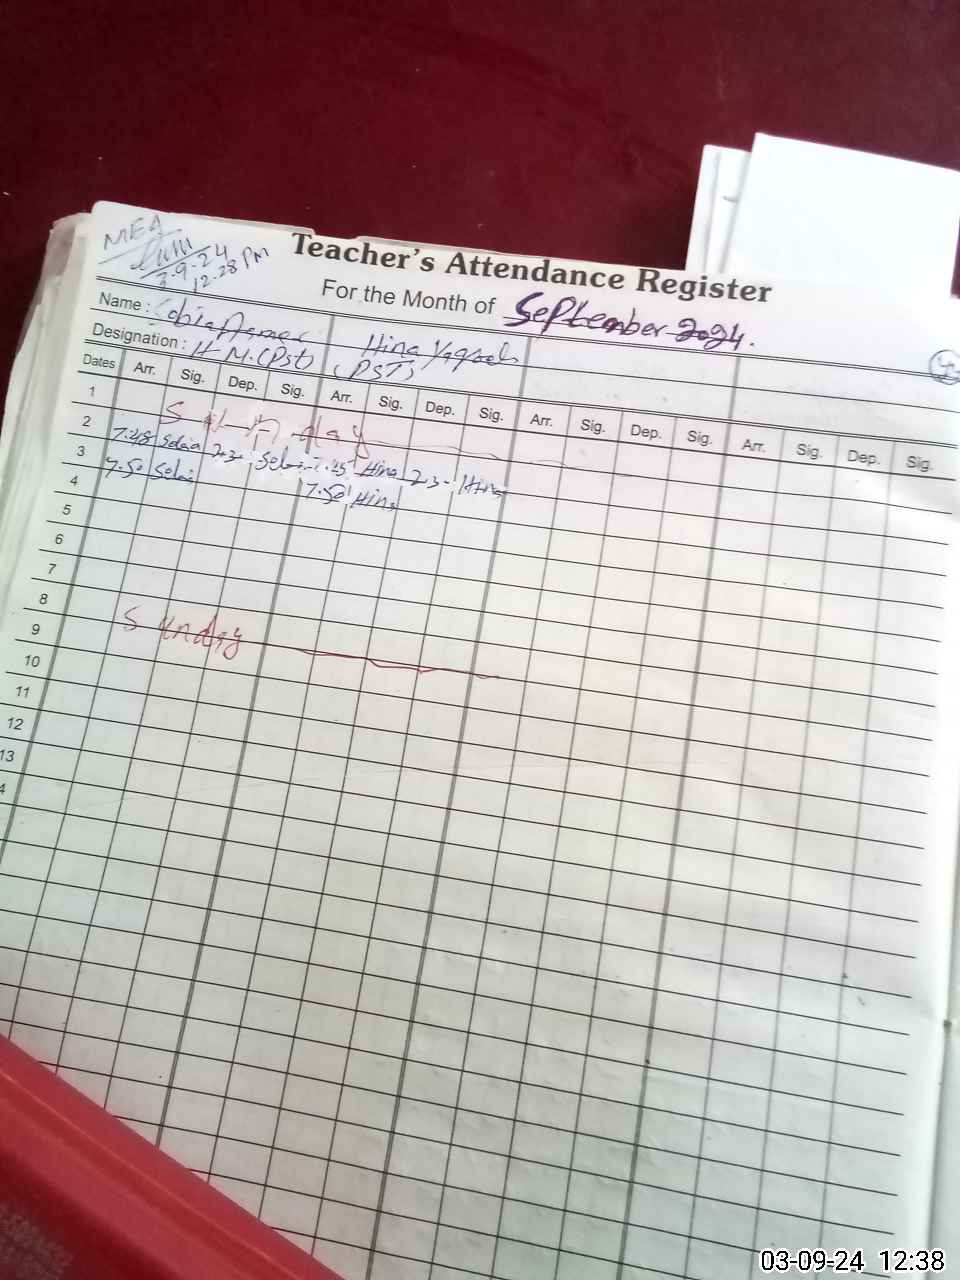 MEA
3.9.24
12.28 PM
Teacher's Attendance Register
For the Month of September 2024.
Name : Hina Yaqoob
Designation : H.M.(Pst) (PST)
Dates Arr. Sig. Dep. Sig. Arr. Sig. Dep. Sig. Arr. Sig. Dep. Sig. Arr. Sig. Dep. Sig.
1 Sunday
2 7.48 2.30 7.45 Hina 2.30 Hina
3 7.50 7.50 Hina
4
5
6
7
8 Sunday
9
10
11
12
13
4
03-09-24 12:38